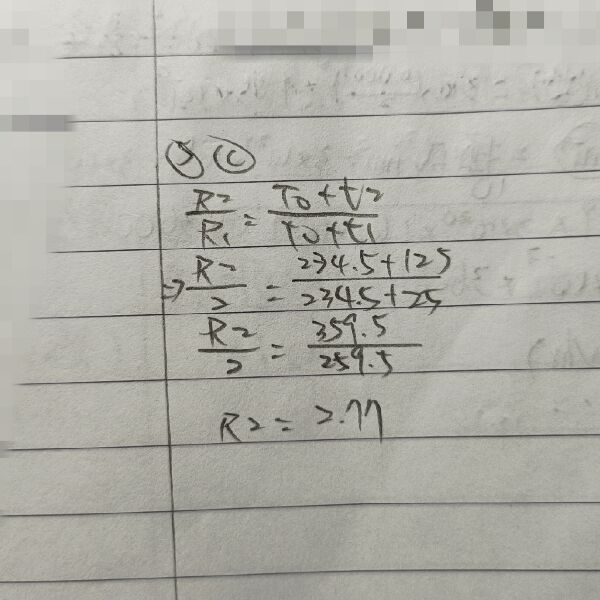 5 (C)
R2/R1 = T0+t2/T0+t1
⇒ R2/2 = 234.5+125/234.5+25
R2/2 = 359.5/259.5
R2 = 2.77